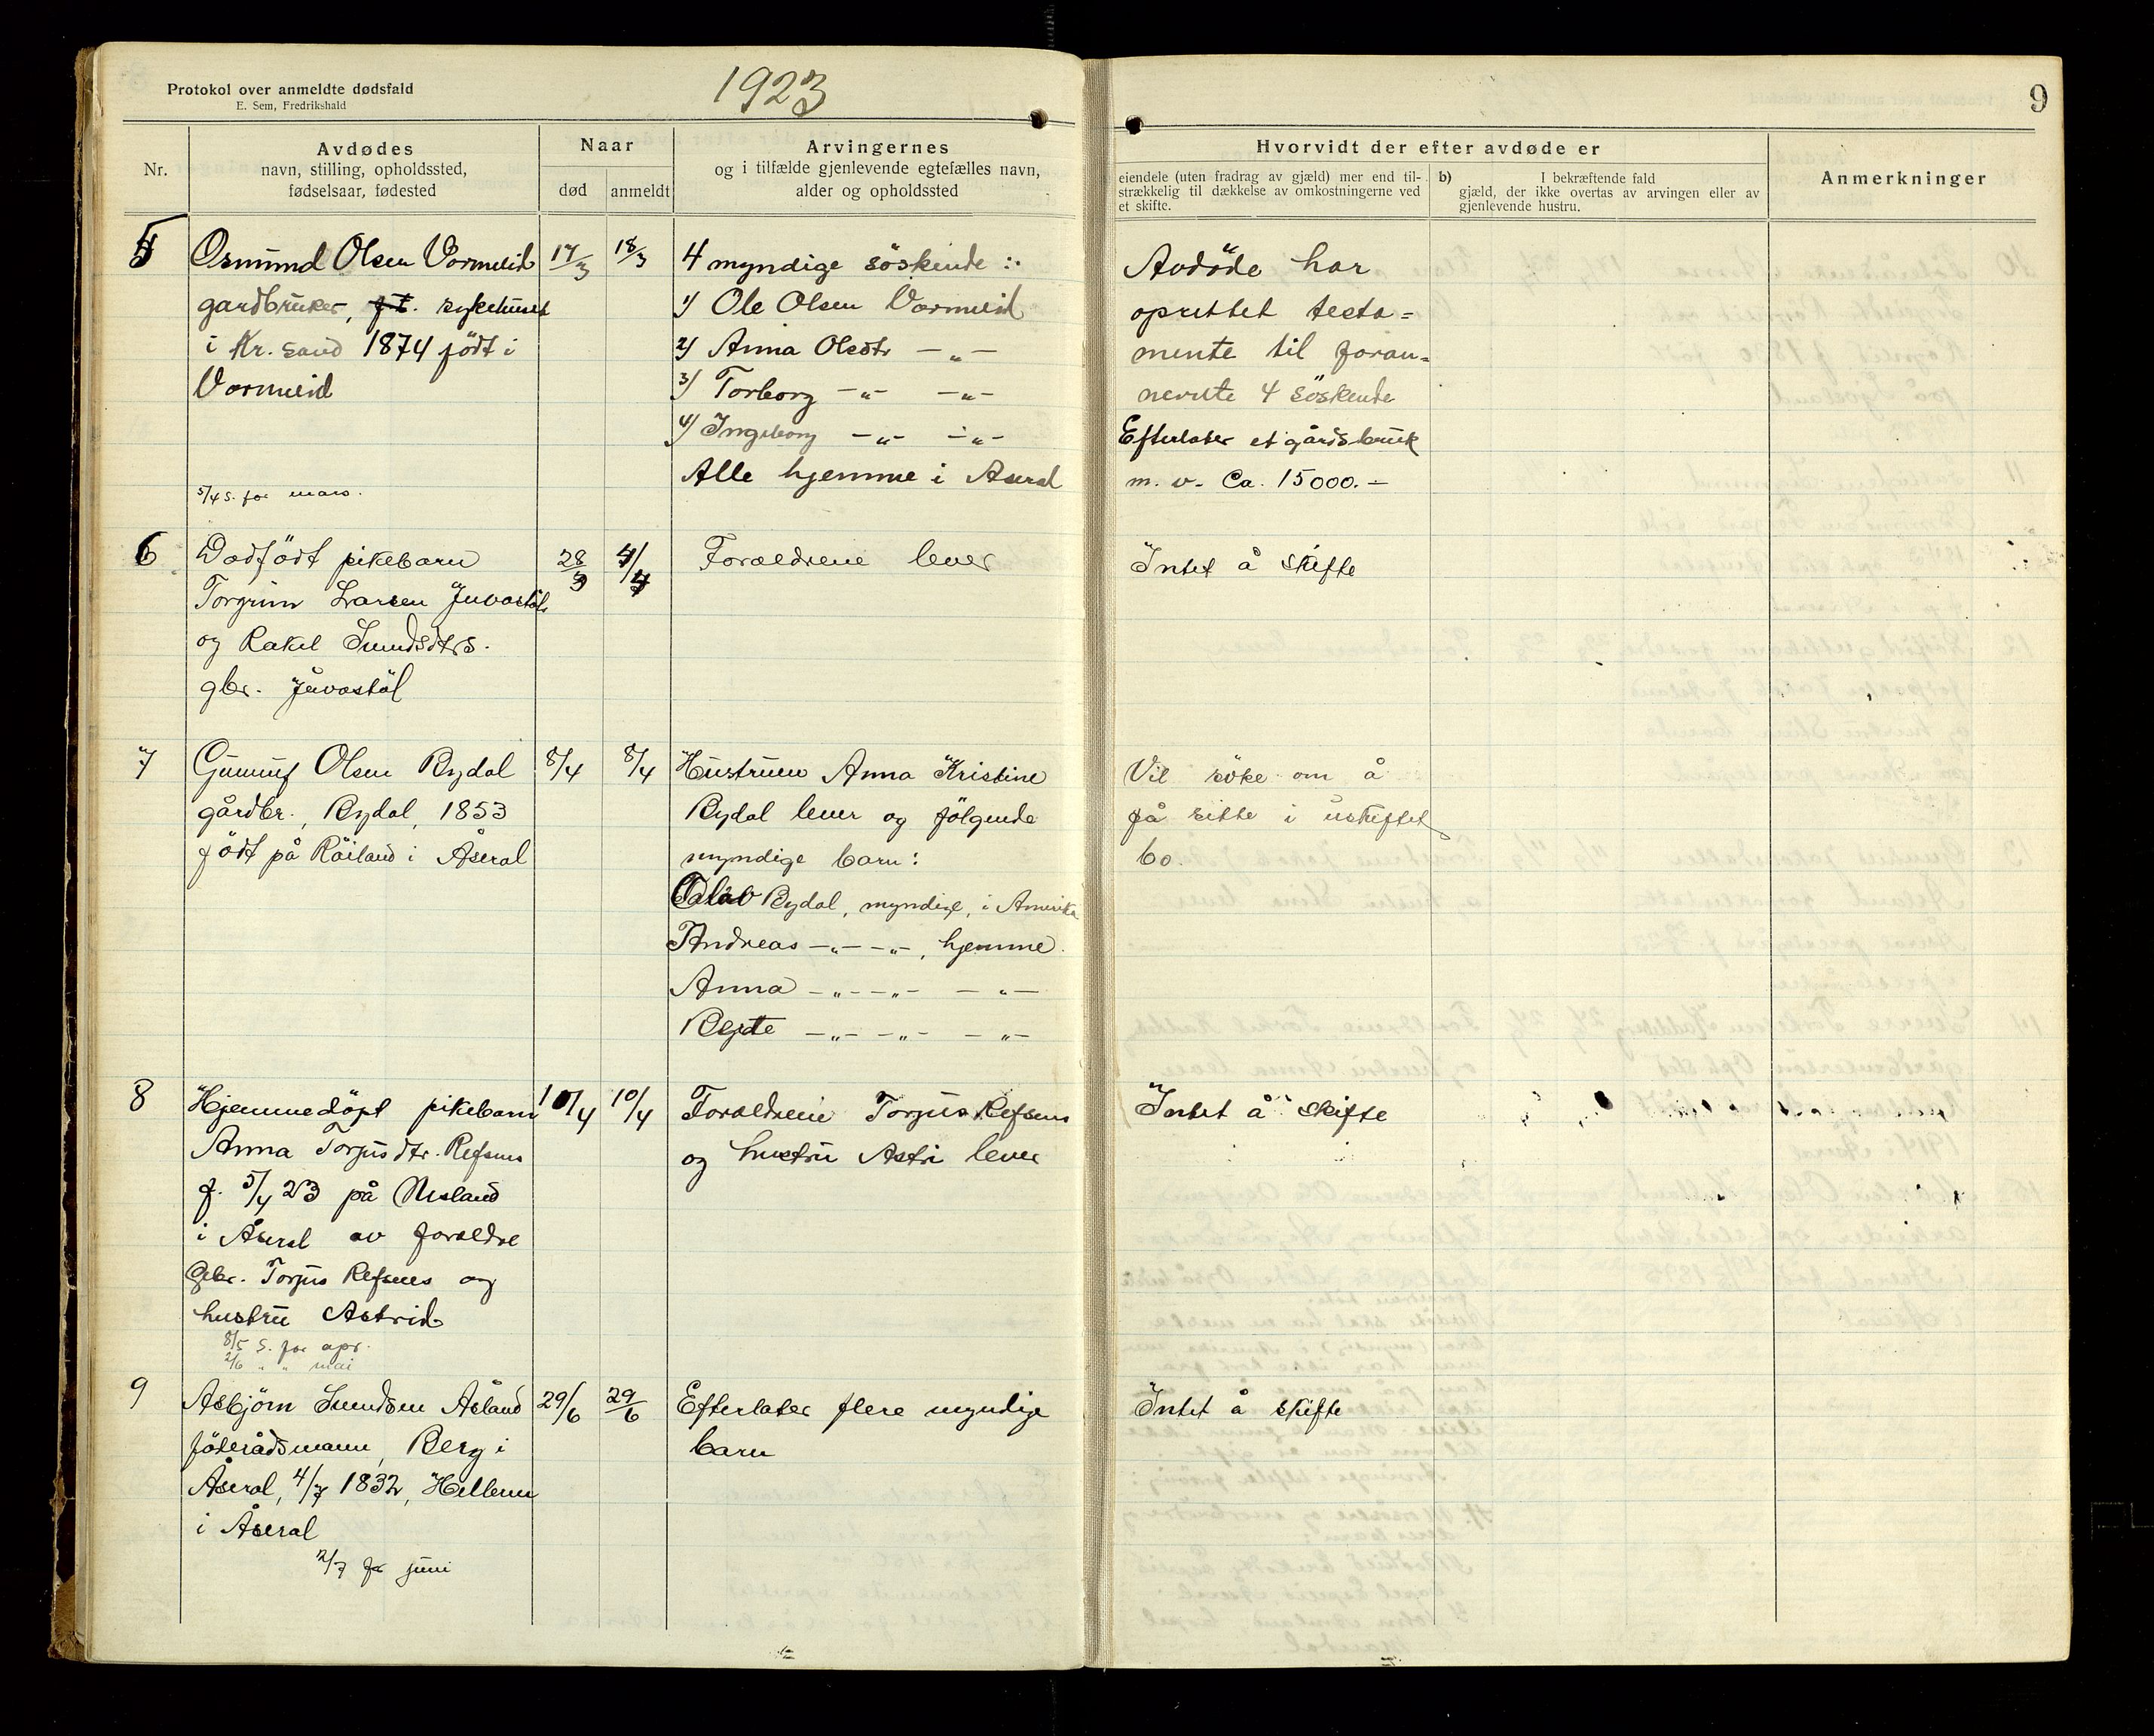 Protokol over anmeldte dødsfald
E. Sem, Fredrikshald
1923
9
Nr.
Avdødes
navn, stilling, opholdssted,
fødselsaar, fødested
Naar
død
anmeldt
Arvingernes
og i tilfælde gjenlevende egtefælles navn,
alder og opholdssted
Hvorvidt der efter avdøde er
eiendele (uten fradrag av gjæld) mer end til-
strækkelig til dækkelse av omkostningerne ved
et skifte.
b) I bekræftende fald
gjæld, der ikke overtas av arvingen eller av
gjenlevende hustru.
Anmerkninger
5
Osmund Olsen Vormeid
gardbruker, sykehuset
i Kr. sand 1874 födt i
Vormeid
5/4 S. for mars.
17/3
18/3
4 myndige söskende :
1) Ole Olsen Vormeid
2) Anna Olsdtr —"—
3) Torborg —"— —"—
4) Ingeborg —"— —"—
Alle hjemme i Aseral
Avdöde har
oprettet testa=
mente til foran=
nevnte 4 söskende
Efterlater et gårdsbruk
m. v. Ca. 15000.—
6
Dödfödt pikebarn
Torgrim Larsen Juvastöl
og Rakel Sundsdtrs.
gbr. Juvastöl
28/3
4/4
Foraeldrene lever
Intet å skifte
7
Gunnuf Olsen Rydal
gårdbr., Rydal, 1853
födt på Röiland i Åseral
8/4
8/4
Hustruen Anna Kristine
Rydal lever og fölgende
myndige barn:
Olav Rydal, myndige, i Amerika
Andreas —"— —"—, hjemme.
Anna —"— —"— — "—
Berte —"— —"— — "—
Vil söke om å
få sitte i uskiftet
bo.
8
Hjemmedöpt pikebarn
Anna Torjusdtr. Refsnes
f. 5/4 23 på Nisland
i Åseral av foraeldre
Gbr. Torjus Refsnes og
hustru Astrid
8/5 S. for apr.
2/6 " " mai
10/4
10/4
Foraeldrene Torjus Refsnes
og hustru Astri lever
Intet å skifte
9
Asbjörn Sundsen Åsland
föderådsmann, Berg i
Åseral, 4/7 1832, Helleren
i Åseral
2/7 for juni
29/6
29/6
Efterlater flere myndige
barn
Intet å skifte